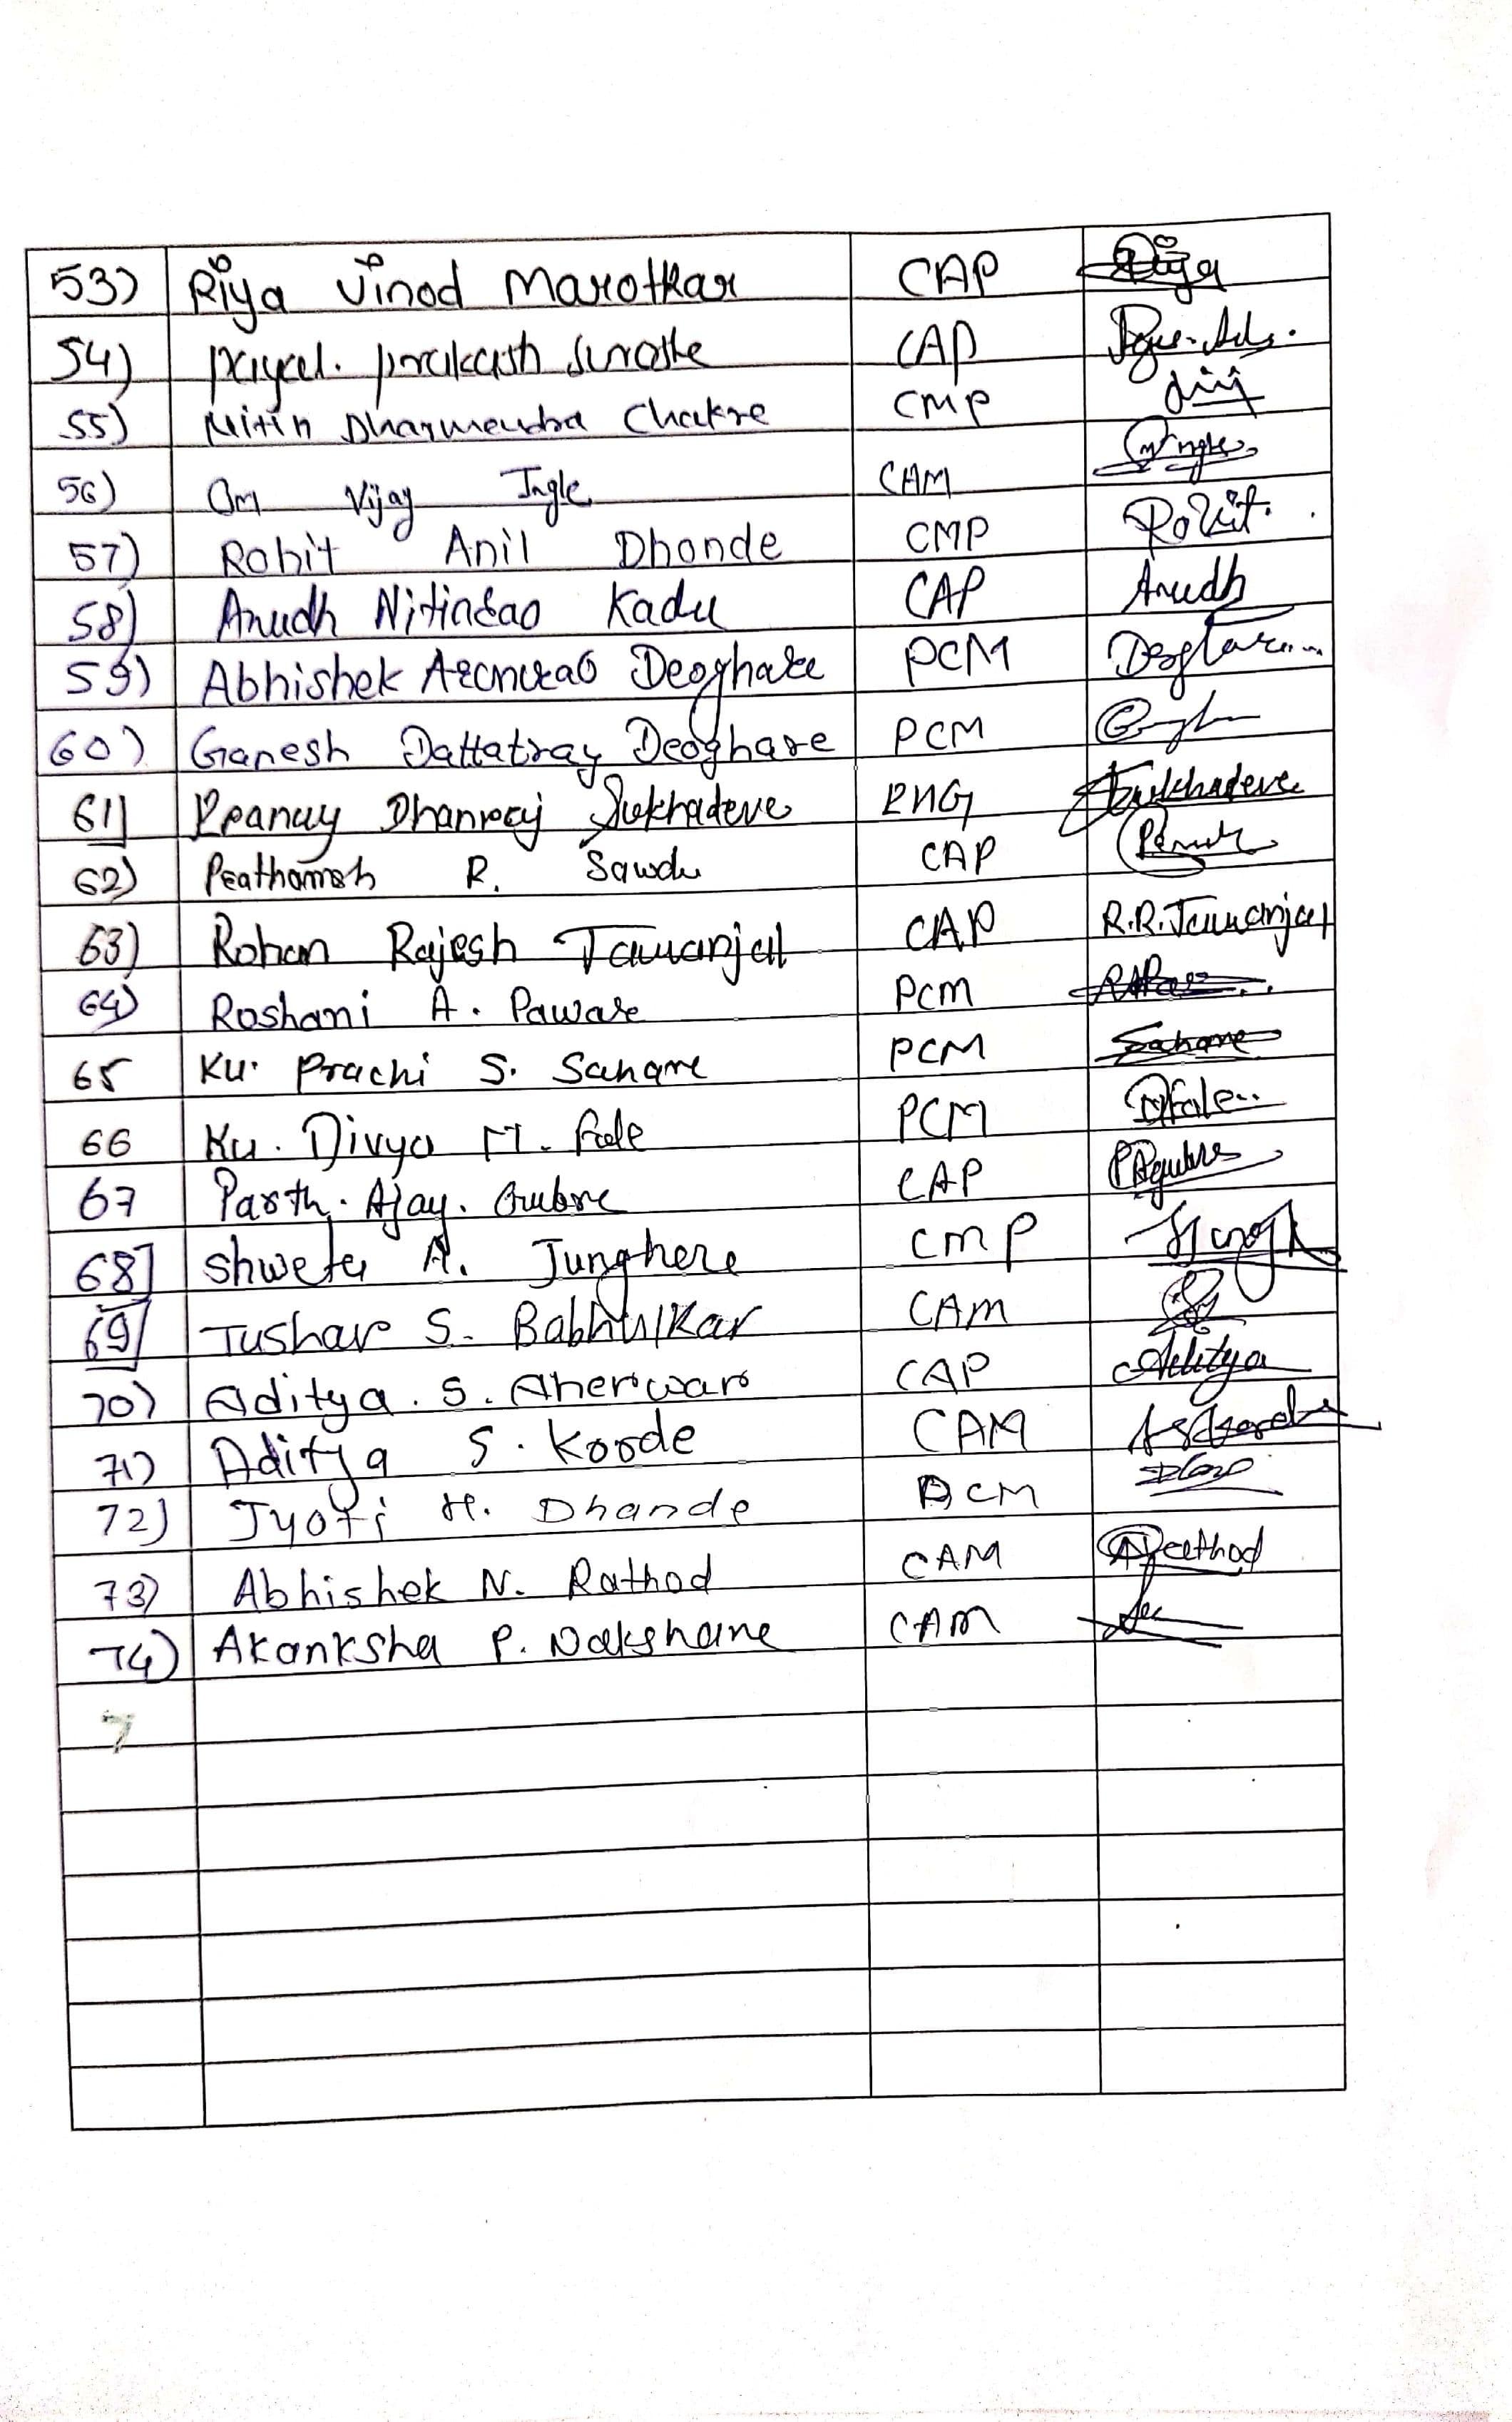 53) Riya Vinod Marotkar CAP Riya
54) Payal. Prakash Surashe CAP
55) Nitin Dharmendra Chakre CMP
56) Om Vijay Ingle CAM
57) Rohit Anil Dhonde CMP Rohit.
58) Anudh Nitinrao Kadu CAP Anudh
59) Abhishek Deoghare PCM
60) Ganesh Dattatray Deoghare PCM
61) Pranay Dhanraj Sukhadeve ENG Sukhadeve
62) Prathamesh R. CAP
63) Rohan Rajesh Tawanjal? CAP R.R.
64) Roshani A. Paware PCM
65 Ku. Prachi S. Sahare PCM Sahare
66 Ku. Divya M. Fale PCM DFale..
67 Parth. Ajay. CAP
68] Shweta A. Junghere CMP
69] Tushar S. Babhulkar CAM
70) Aditya. S. Aherwar CAP Aditya
71) Aditya S. Korde CAM
72) Jyoti H. Dhande PCM
73) Abhishek N. Rathod CAM ARathod
74) Akanksha P. Nakshane CAM
7